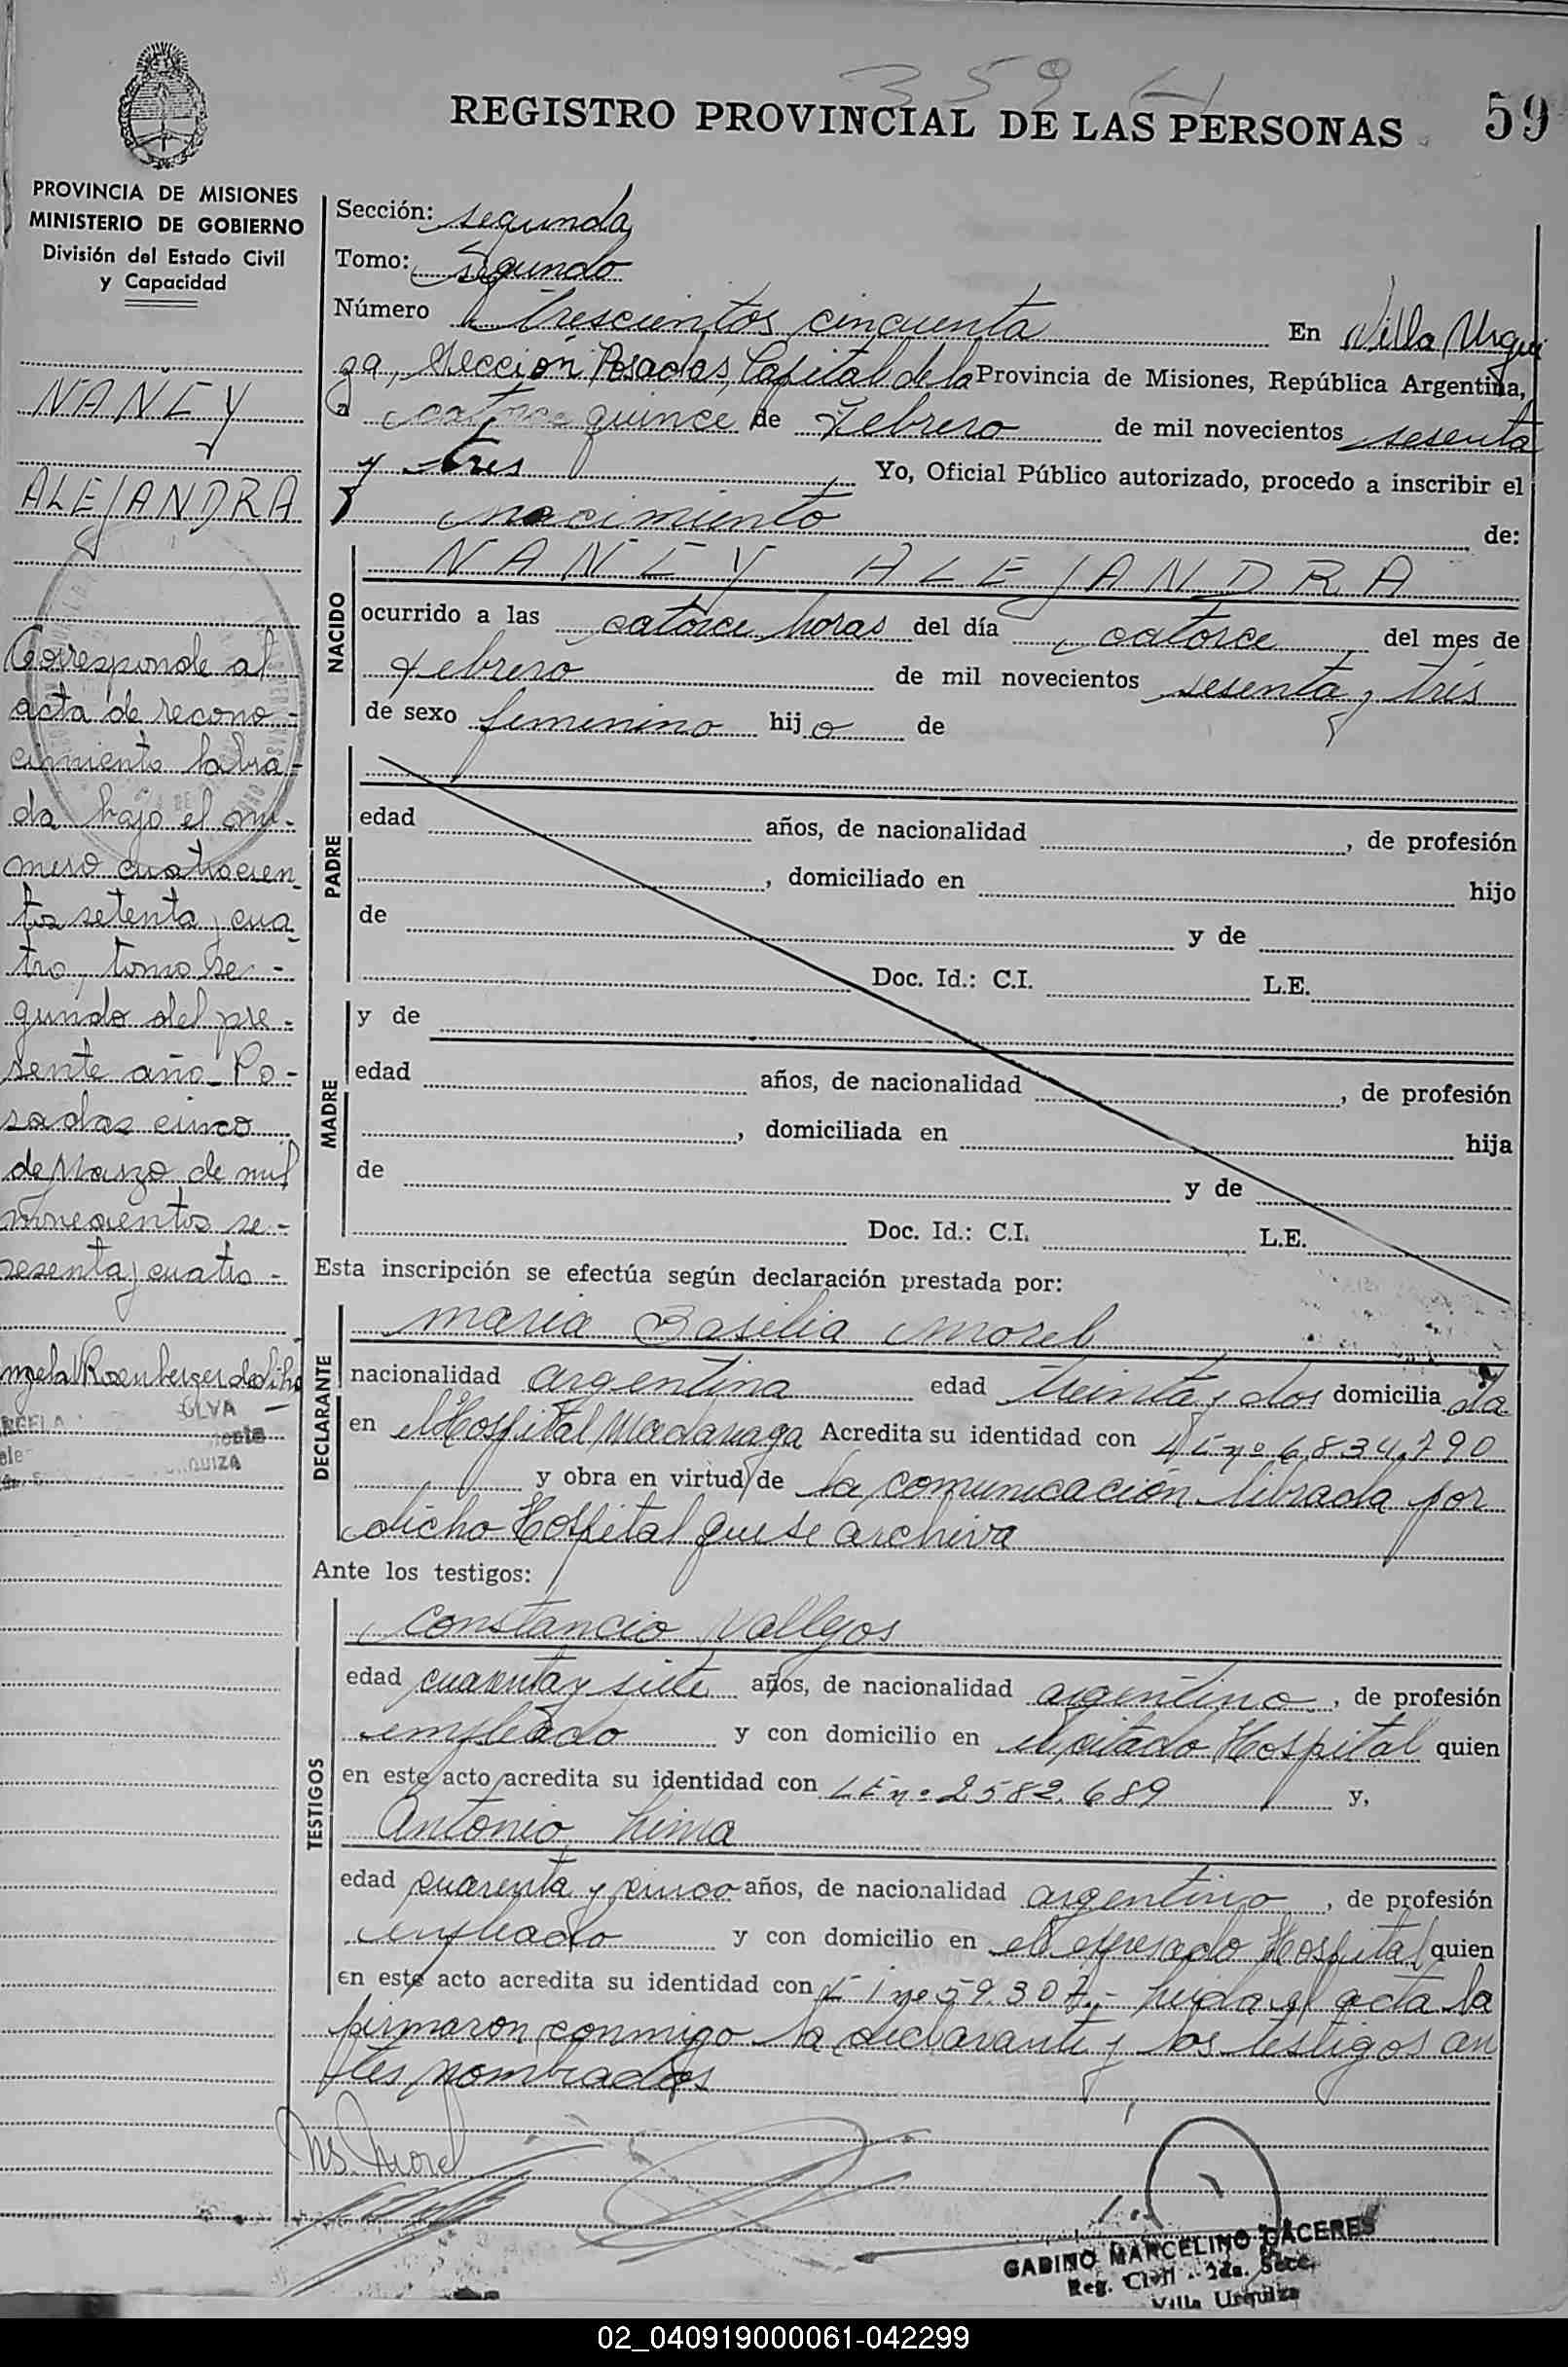 REGISTRO PROVINCIAL DE LAS PERSONAS
59
PROVINCIA DE MISIONES
MINISTERIO DE GOBIERNO
División del Estado Civil
y Capacidad
NANCY
ALEJANDRA
Corresponde al
acta de recono-
cimiento labra-
da bajo el nú-
mero cuatrocien-
tos setenta y cua-
tro, tomo se-
gundo del pre-
sente año. Po-
sadas cinco
de Marzo de mil
novecientos se-
senta y cuatro -
Sección: segunda
Tomo: segundo
Número trescientos cincuenta En Villa Urqui
za, Sección Posadas, Capital de la Provincia de Misiones, República Argentina,
a catorce quince de Febrero de mil novecientos sesenta
y tres Yo, Oficial Público autorizado, procedo a inscribir el
nacimiento de:
NACIDO
NANCY ALEJANDRA
ocurrido a las catorce horas del día catorce del mes de
Febrero de mil novecientos sesenta y tres
de sexo femenino hijo de
PADRE
edad años, de nacionalidad , de profesión
, domiciliado en hijo
de y de
Doc. Id.: C.I. L.E.
MADRE
y de
edad años, de nacionalidad , de profesión
, domiciliada en hija
de y de
Doc. Id.: C.I. L.E.
Esta inscripción se efectúa según declaración prestada por:
DECLARANTE
Maria Basilia Morel
nacionalidad argentina edad treinta y dos domicilia da
en el Hospital Madariaga Acredita su identidad con nº 6.834.790
y obra en virtud de la comunicación librada por
dicho Hospital que se archiva
Ante los testigos:
TESTIGOS
Constancio Vallejos
edad cuarenta y siete años, de nacionalidad argentino, de profesión
empleado y con domicilio en el citado Hospital quien
en este acto acredita su identidad con LE nº 2582.689 y,
Antonio Lima
edad cuarenta y cinco años, de nacionalidad argentino, de profesión
empleado y con domicilio en el expresado Hospital quien
en este acto acredita su identidad con nº 59.307.- Leida el acta la
firmaron conmigo la declarante y los testigos an
tes nombrados
Ms. Morel
GABINO MARCELINO CACERES
Reg. Civil - 2da. Secc.
Villa Urquiza
02_040919000061-042299